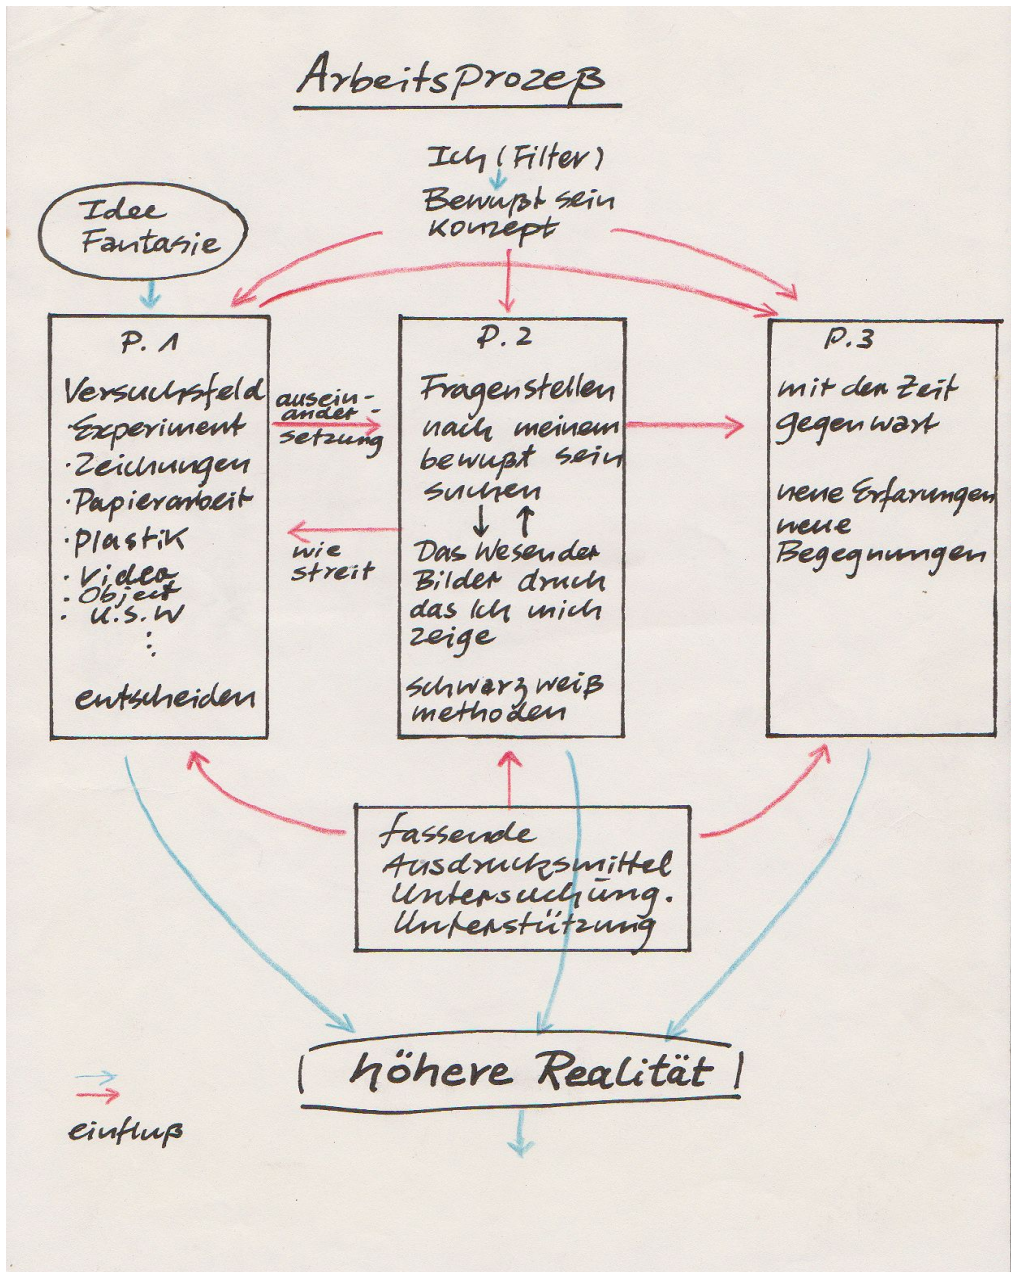 Arbeitsprozeß
Ich (Filter)
Bewußt sein
Konzept
Idee
Fantasie
P. 1
Versuchsfeld
·Experiment
·Zeichungen
·Papierarbeit
·Plastik
·Video
·Object
· U.S.W
entscheiden
ausein-
ander-
setzung
wie
streit
P. 2
Fragenstellen
nach meinem
bewußt sein
suchen
Das Wesen der
Bilder druch
das Ich mich
zeige
schwarz weiß
methoden
P.3
mit der Zeit
gegenwart
neue Erfarungen
neue
Begegnungen
fassende
Ausdrucksmittel
Untersuchung.
Unterstützung
höhere Realität
einfluß